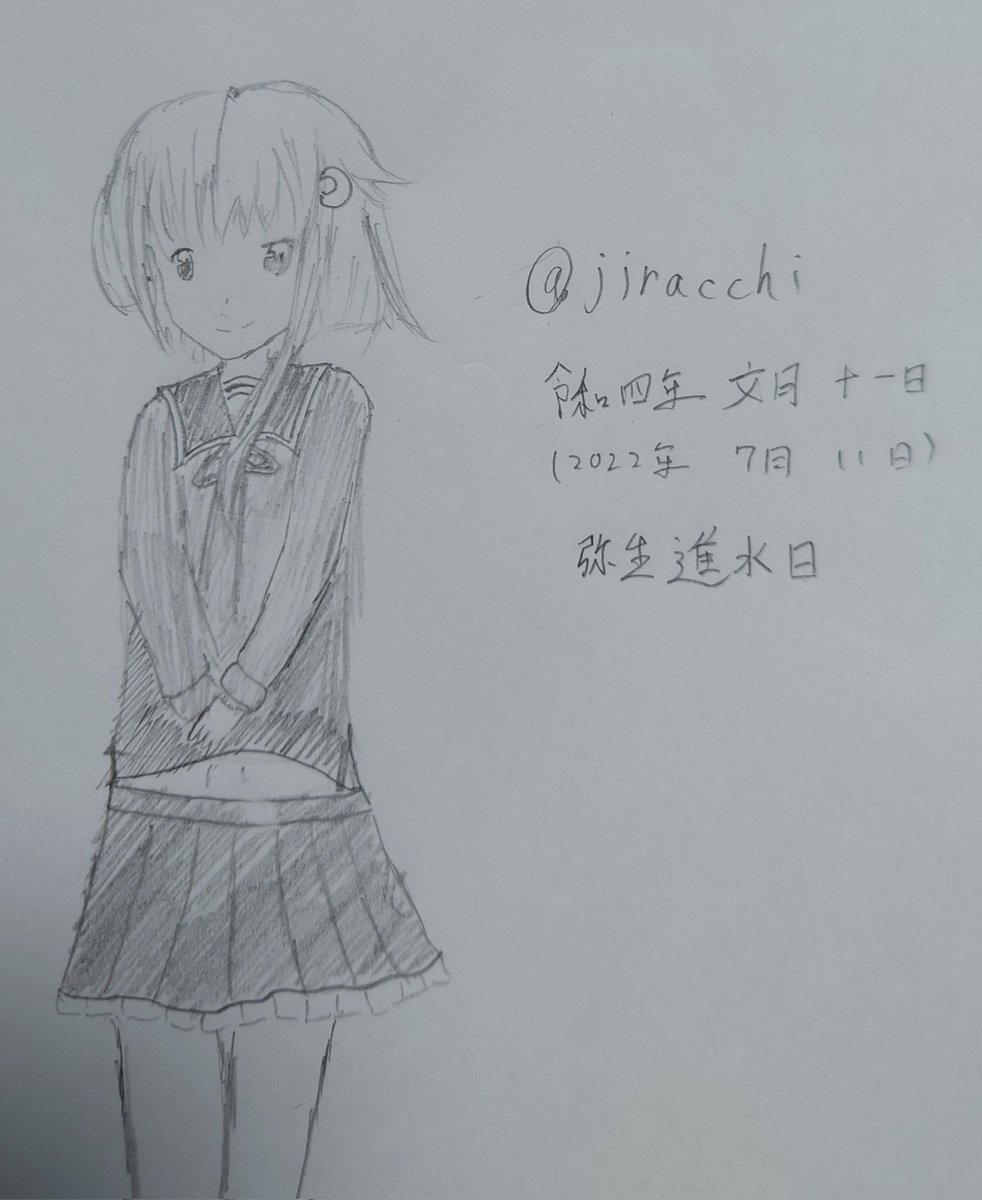 @jiracchi
令和四年 文月 十一日
(2022年 7月 11日)
弥生進水日